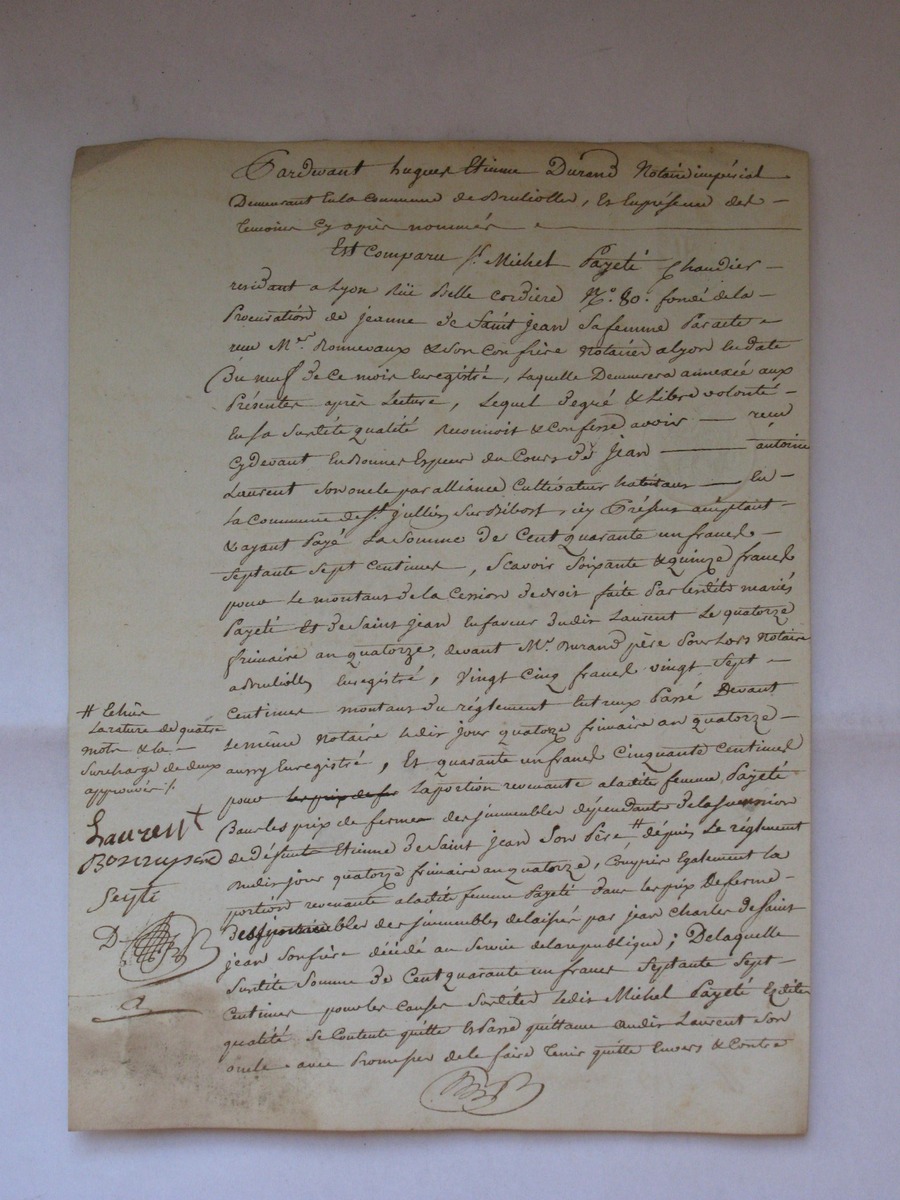 Pardevant hugues Etienne Durand Notaire impérial
Demeurant En la Commune de Brulliolles, Et En présence des
temoins Cy après nommés
Est Comparu sr. Michel Payeté Chaudier
residant a Lyon Rüe Belle Cordiere No. 80. fondé de la
Procuration de jeanne de Saint jean sa femme Par acte
recu Mrs. Bonnevaux & Son Confrère Notaires a Lyon En date
Du neuf de Ce mois Enregistré, Laquelle Demeurera annexée aux
Présentes après Lecture, Lequel de gré & Libre volonté
En sa Surdité qualité Reconnoit & Confesse avoir recu
Cy devant En Bonnes Especes du Cours de jean antoine
Laurent Son oncle par alliance Cultivateur habitant En
La Commune de St. jullien Sur Bibost, icy Présent acceptant
& ayant Payé La Somme de Cent quarante un francs
Septante Sept Centimes, Scavoir Soixante & quinze francs
pour Le montant de la Cession de droit faite Par Lesdits mariés
Payeté Et de Saint jean En faveur dudit Laurent Le quatorze
frimaire an quatorze, devant Mr. Durand père Pour Lors Notaire
a Brulliolles Enregistré, Vingt Cinq francs vingt Sept
Centimes montant du réglement Entreux Passé Devant
Le même Notaire Ledit jour quatorze frimaire an quatorze
aussy Enregistré, Et quarante un francs Cinquante Centimes
pour les prix de fer La portion revenante a ladite femme Payeté
Dans les prix de fermes des jmmeubles dépendants de la Succession
de Défunt Etienne de Saint jean Son Père # depuis Le réglement
Dudit jour quatorze frimaire an quatorze, Compris Egalement La
portion revenante a ladite femme Payeté dans les prix de ferme
des jmmeubles delaissés par jean Charles de Saint
jean Son frère décédé au Service de la republique; De laquelle
Surdite Somme de Cent quarante un francs Septante Sept
Centimes pour les Causes Surdites Ledit Michel Payeté Esdites
qualité Se Contente quitte Et Passe quittance audit Laurent Son
oncle avec Promesse de le faire tenir quitte Envers & Contre
# Echus
La rature de quatre
mots & la
Surcharge de deux
approuvés ./.
Laurent